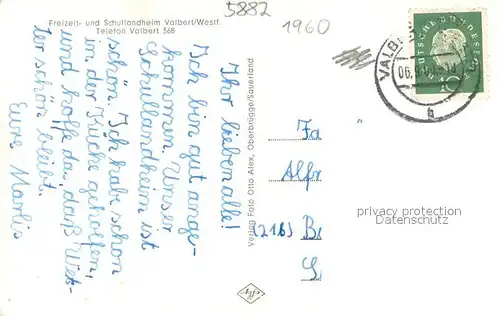 5882
1960
Freizeit- und Schullandheim Valbert/Westf.
Telefon Valbert 568
Ihr lieben alle!
Ich bin gut ange-
kommen. Unser
Schullandheim ist
schon. Ich habe schon
in der Küche geholfen,
und hoffe da, daß Wet-
ter schön bleibt.
Eure Marlis
Verlag Foto Otto Alex, Oberbrügge/Sauerland
Fa
Alfr
(216) B
L
DEUTSCHE BUNDESPOST
10
VALBE
06.
b
privacy protection
Datenschutz